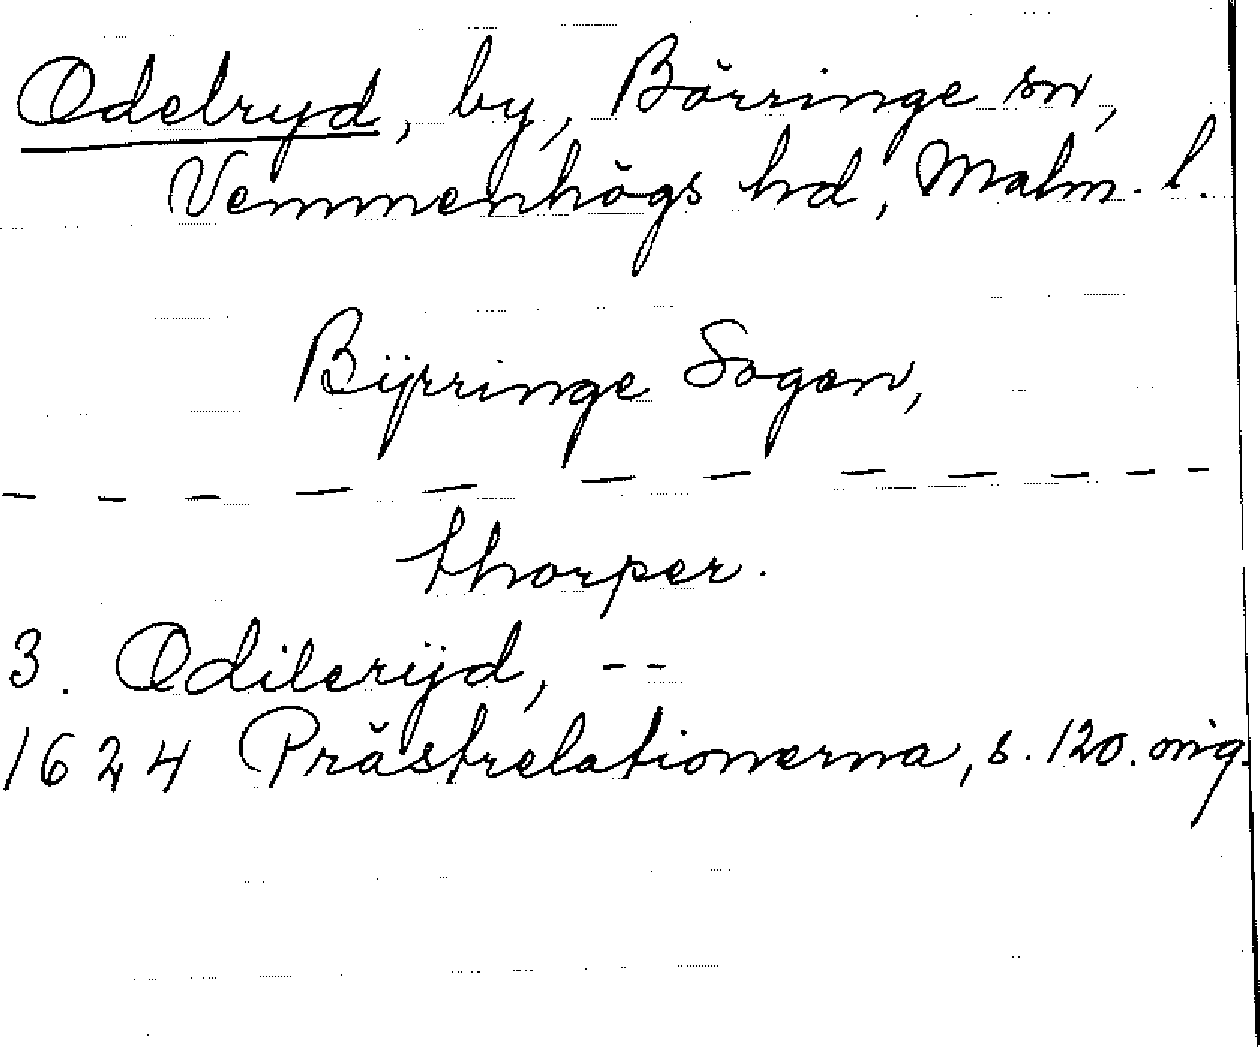 Odelryd, by, Börringe sn,
Vemmenhögs hd, Malm. l.
Bÿrringe Sogen,
— — — — — — — — — — —
thorper.
3. Odilerÿd, --
1624 Prästrelationerna, s. 120. orig.